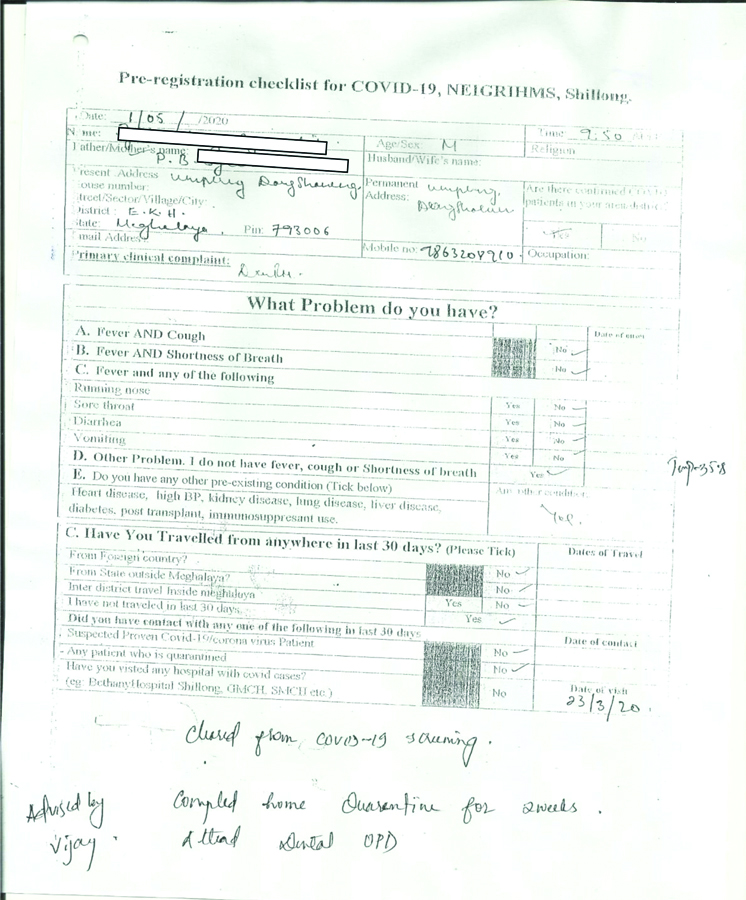 Pre-registration checklist for COVID-19, NEIGRIHMS, Shillong.
Date: 1/05/ /2020
Name: Age/Sex: M Time: 9:50
Father/Mother's name: P. B Husband/Wife's name: Religion
Present Address umpling Permanent Address: umpling Are there confirmed COVID patients in your area/district
House number:
Street/Sector/Village/City:
District: E.K.H. Yes No
State: Meghalaya. Pin: 793006
Email Address Mobile no: Occupation:
Primary clinical complaint:
What Problem do you have?
Date of onset
A. Fever AND Cough No
B. Fever AND Shortness of Breath No
C. Fever and any of the following
Running nose Yes No
Sore throat Yes No
Diarrhea Yes No
Vomiting Yes No
D. Other Problem. I do not have fever, cough or Shortness of breath Yes
Temp-35.8
E. Do you have any other pre-existing condition (Tick below) Any other condition
Heart disease, high BP, kidney disease, lung disease, liver disease,
diabetes, post transplant, immunosuppresant use.
C. Have You Travelled from anywhere in last 30 days? (Please Tick) Dates of Travel
From Foreign country? No
From State outside Meghalaya? No
Inter district travel Inside meghalaya Yes No
I have not traveled in last 30 days. Yes
Did you have contact with any one of the following in last 30 days
- Suspected/Proven Covid-19/corona virus Patient No Date of contact
- Any patient who is quarantined No
- Have you visted any hospital with covid cases? No Date of visit
(eg: BethanyHospital Shillong, GMCH, SMCH etc.) 23/3/20.
Cleared from COVID-19 screening.
Advised by Compled home Quarantine for 2weeks.
Vijay. Attend Dental OPD